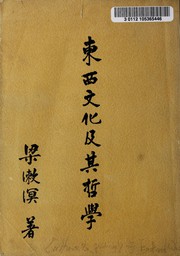 東西文化及其哲學
梁漱溟 著
3 0112 105365446